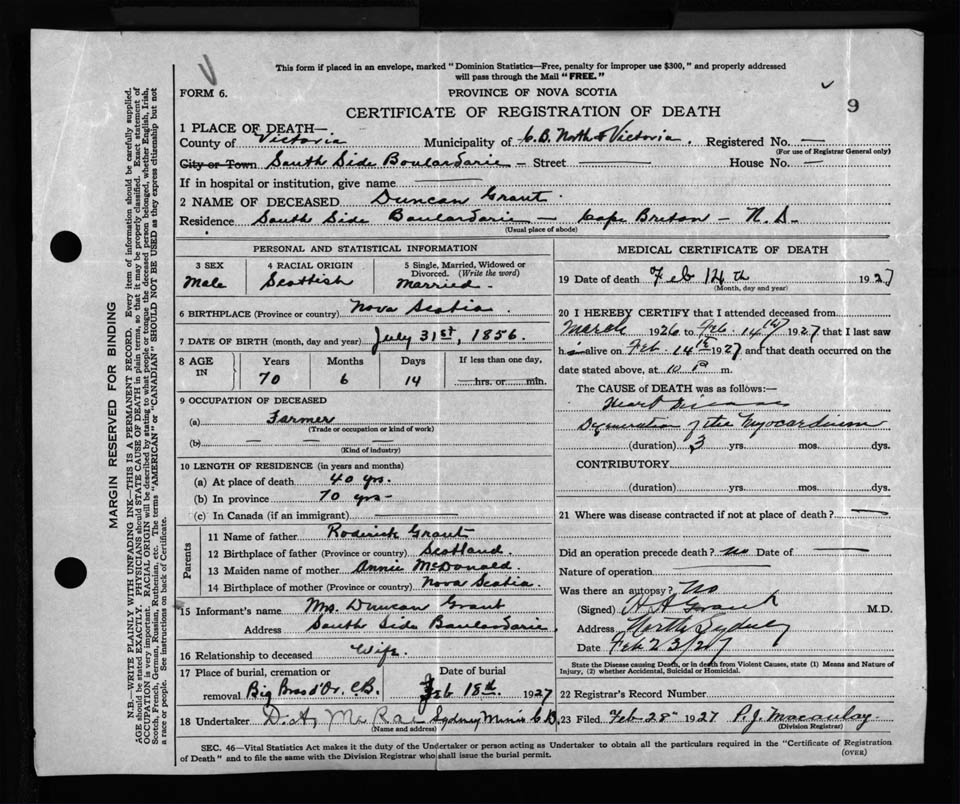 This form if placed in an envelope, marked "Dominion Statistics—Free, penalty for improper use $300," and properly addressed
will pass through the Mail "FREE."
FORM 6.
PROVINCE OF NOVA SCOTIA
9
CERTIFICATE OF REGISTRATION OF DEATH
1 PLACE OF DEATH—
County of Victoria Municipality of C.B. North & Victoria. Registered No. —
(For use of Registrar General only)
City or Town South Side Boulardarie — Street — House No. —
If in hospital or institution, give name —
2 NAME OF DECEASED Duncan Grant.
Residence South Side Boulardarie — Cape Breton — N.S.
(Usual place of abode)
PERSONAL AND STATISTICAL INFORMATION
3 SEX
Male
4 RACIAL ORIGIN
Scottish
5 Single, Married, Widowed or
Divorced. (Write the word)
Married.
6 BIRTHPLACE (Province or country) Nova Scotia
7 DATE OF BIRTH (month, day and year) July 31st, 1856.
8 AGE
IN
Years Months Days If less than one day,
70 6 14 hrs. or min.
9 OCCUPATION OF DECEASED
(a) Farmer
(Trade or occupation or kind of work)
(b) — — —
(Kind of industry)
10 LENGTH OF RESIDENCE (in years and months)
(a) At place of death 40 yrs.
(b) In province 70 yrs —
(c) In Canada (if an immigrant) —
Parents
11 Name of father Roderick Grant
12 Birthplace of father (Province or country) Scotland.
13 Maiden name of mother Annie McDonald.
14 Birthplace of mother (Province or country) Nova Scotia.
15 Informant's name Mrs. Duncan Grant
Address South Side Boulardarie
16 Relationship to deceased Wife.
17 Place of burial, cremation or Date of burial
removal Big Bras d'Or, C.B. Feb 18th. 1927
18 Undertaker D. A. McRae Sydney Mines C.B.
(Name and address)
MEDICAL CERTIFICATE OF DEATH
19 Date of death Feb 14th 1927
(Month, day and year)
20 I HEREBY CERTIFY that I attended deceased from
March 1926 to Feb. 14th 1927 that I last saw
him alive on Feb 14th 1927 and that death occurred on the
date stated above, at 10 P m.
The CAUSE of DEATH was as follows:—
Heart Disease
Degeneration of the Myocardium
(duration) 3 yrs. mos. dys.
CONTRIBUTORY.
(duration) yrs. mos. dys.
21 Where was disease contracted if not at place of death? —
Did an operation precede death? no Date of —
Nature of operation —
Was there an autopsy? No
(Signed) H A Grant M.D.
Address North Sydney
Date Feb 23/27
State the Disease causing Death, or in death from Violent Causes, state (1) Means and Nature of
Injury, (2) whether Accidental, Suicidal or Homicidal.
22 Registrar's Record Number
23 Filed Feb 28th 1927 P.J. Macaulay.
(Division Registrar)
SEC. 46—Vital Statistics Act makes it the duty of the Undertaker or person acting as Undertaker to obtain all the particulars required in the "Certificate of Registration
of Death" and to file the same with the Division Registrar who shall issue the burial permit.
(OVER)
MARGIN RESERVED FOR BINDING
N.B.—WRITE PLAINLY WITH UNFADING INK—THIS IS A PERMANENT RECORD. Every item of information should be carefully supplied.
AGE should be stated EXACTLY. PHYSICIANS should STATE CAUSE OF DEATH in plain terms, so that it may be properly classified. Exact statement of
OCCUPATION is very important. RACIAL ORIGIN will be described by stating to what people or tongue the deceased person belonged, whether English, Irish,
Scotch, French, German, Russian, Ruthenian, etc. The terms "AMERICAN" or "CANADIAN" SHOULD NOT BE USED as they express citizenship but not
a race or people. See instructions on back of Certificate.